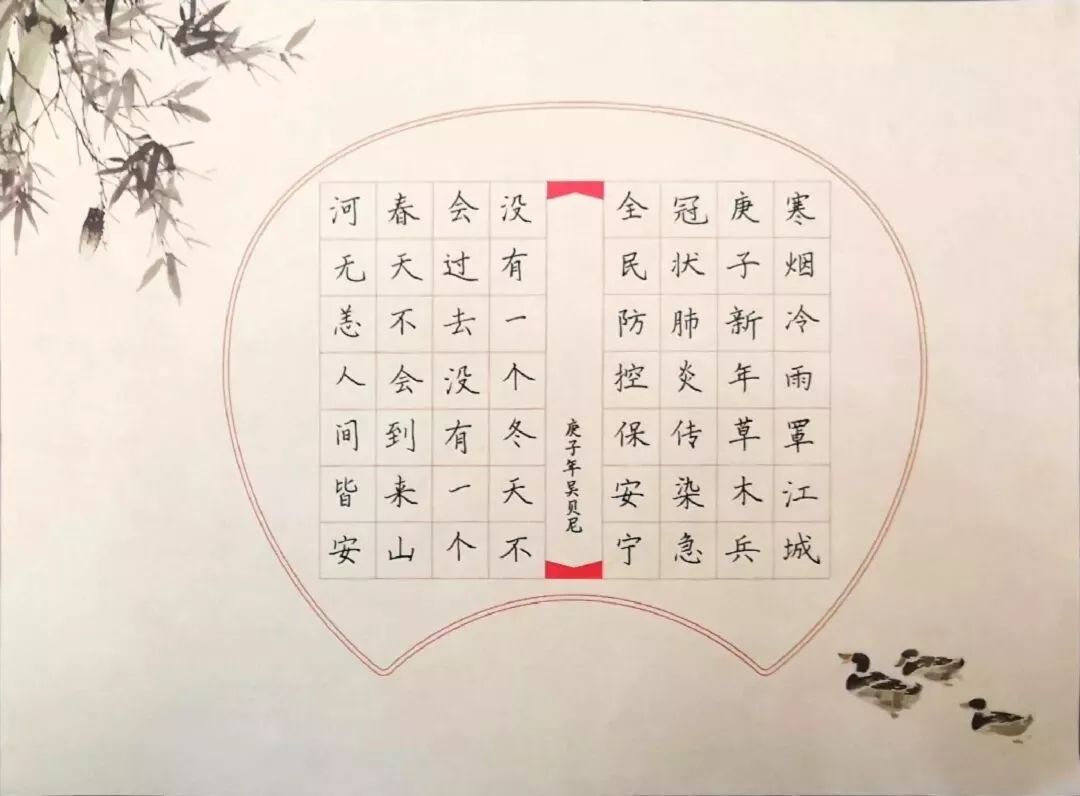 寒烟冷雨罩江城
庚子新年草木兵
冠状肺炎传染急
全民防控保安宁
庚子年吴贝尼
没有一个冬天不
会过去没有一个
春天不会到来山
河无恙人间皆安